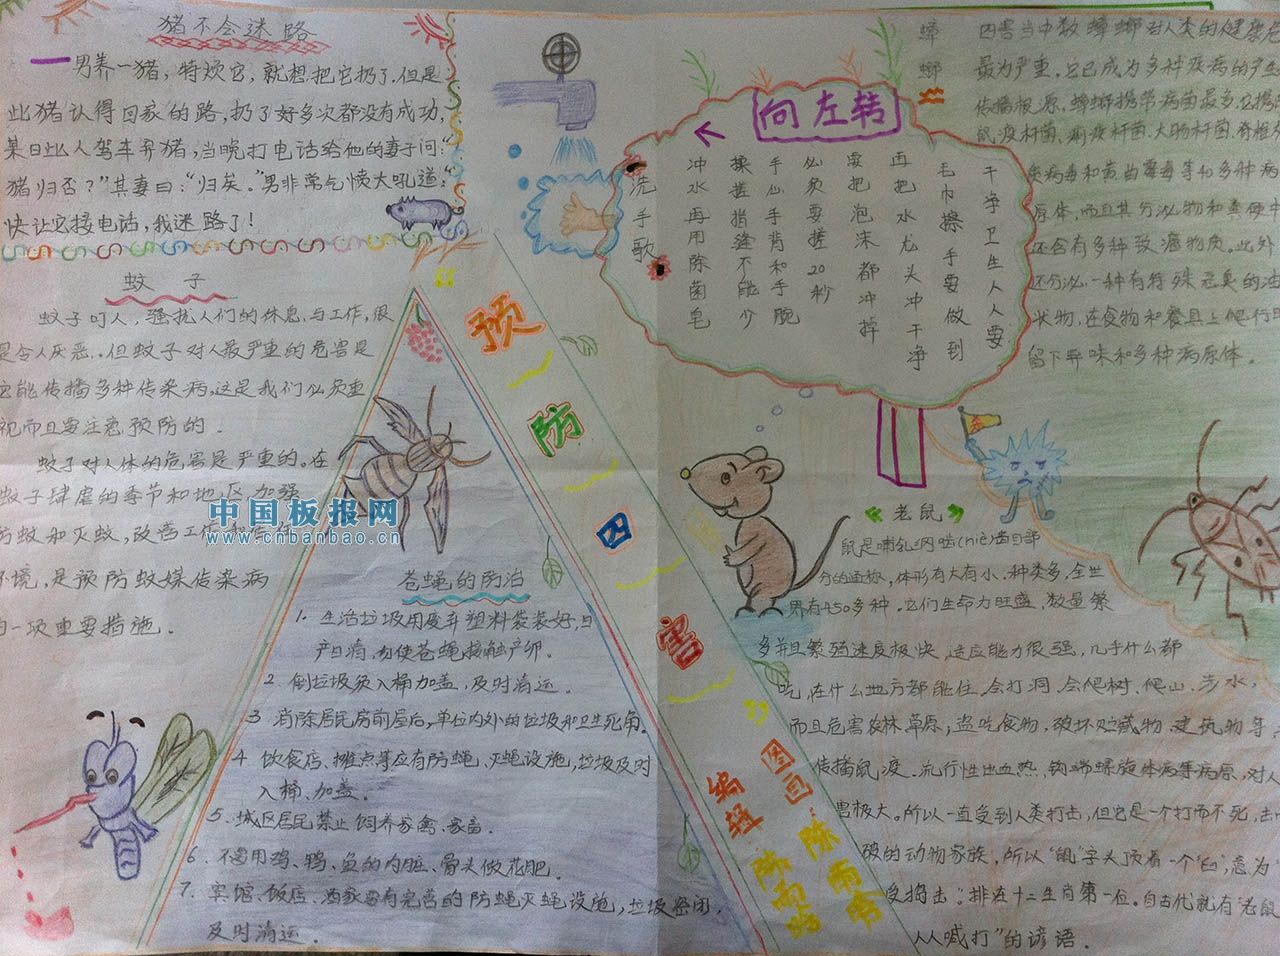 猪不会迷路
一男养一猪，特烦它，就想把它扔了，但是
此猪认得回家的路，扔了好多次都没有成功，
某日此人驾车弃猪，当晚打电话给他的妻子问：“
猪归否？”其妻曰：“归矣。”男非常气愤大吼道：“
快让它接电话，我迷路了！
蚊子
蚊子叮人，骚扰人们的休息与工作，很
是令人厌恶。但蚊子对人最严重的危害是
它能传播多种传染病，这是我们必须重
视而且要注意预防的．
蚊子对人体的危害是严重的。在
蚊子肆虐的季节和地区加强
防蚊和灭蚊，改善工作
环境，是预防蚊媒传染病
的一项重要措施．
“预防四害”
图画：陈雨
编程
苍蝇的防治
1. 生活垃圾用废弃塑料袋装好，日
产日清，勿使苍蝇接触产卵．
2. 倒垃圾须入桶加盖，及时清运．
3 消除居民房前屋后，单位内外的垃圾和卫生死角。
4 饮食店、摊点等应有防蝇、灭蝇设施，垃圾及时
入桶、加盖．
5. 城区居民禁止饲养家禽、家畜．
6. 不要用鸡、鸭、鱼的内脏、骨头做花肥．
7. 宾馆、饭店、酒家要有完善的防蝇灭蝇设施，垃圾密闭，
及时清运．
向左转
干净卫生人人要
毛巾擦手要做到
再把水龙头冲干净
要把泡沫都冲掉
必须要搓20秒
手心手背和手腕
揉搓指缝不能少
冲水再用除菌皂
洗手歌
蟑螂
四害当中数蟑螂对人类的健康危
最为严重。它已成为多种疾病的产生
传播根源，蟑螂携带病菌最多，它携
鼠疫杆菌、痢疾杆菌、大肠杆菌、脊椎
炎病毒和黄曲霉毒等40多种病
原体，而且其分泌物和粪便中
还含有多种致癌物质。此外
还分泌一种有特殊恶臭的油
状物，在食物和餐具上爬行时
留下异味和多种病原体．
《老鼠》
鼠是哺乳纲啮(niè)齿目部
分的通称，体形有大有小、种类多，全世
界有450多种．它们生命力旺盛、数量繁
多并且繁殖速度极快，适应能力很强，几乎什么都
吃，在什么地方都能住，会打洞、会爬树、爬山、涉水，
而且危害农林草原；盗吃食物，破坏贮藏物、建筑物等，
传播鼠疫、流行性出血热、钩端螺旋体病等病原，对人
害极大。所以一直受到人类打击，但它是一个打而不死，击
破的动物家族，所以‘鼠’字头顶着一个‘臼’，意为
多捣击；排在十二生肖第一位。自古代就有“老鼠
人人喊打”的谚语．
中国板报网
www.cnbanbao.cn